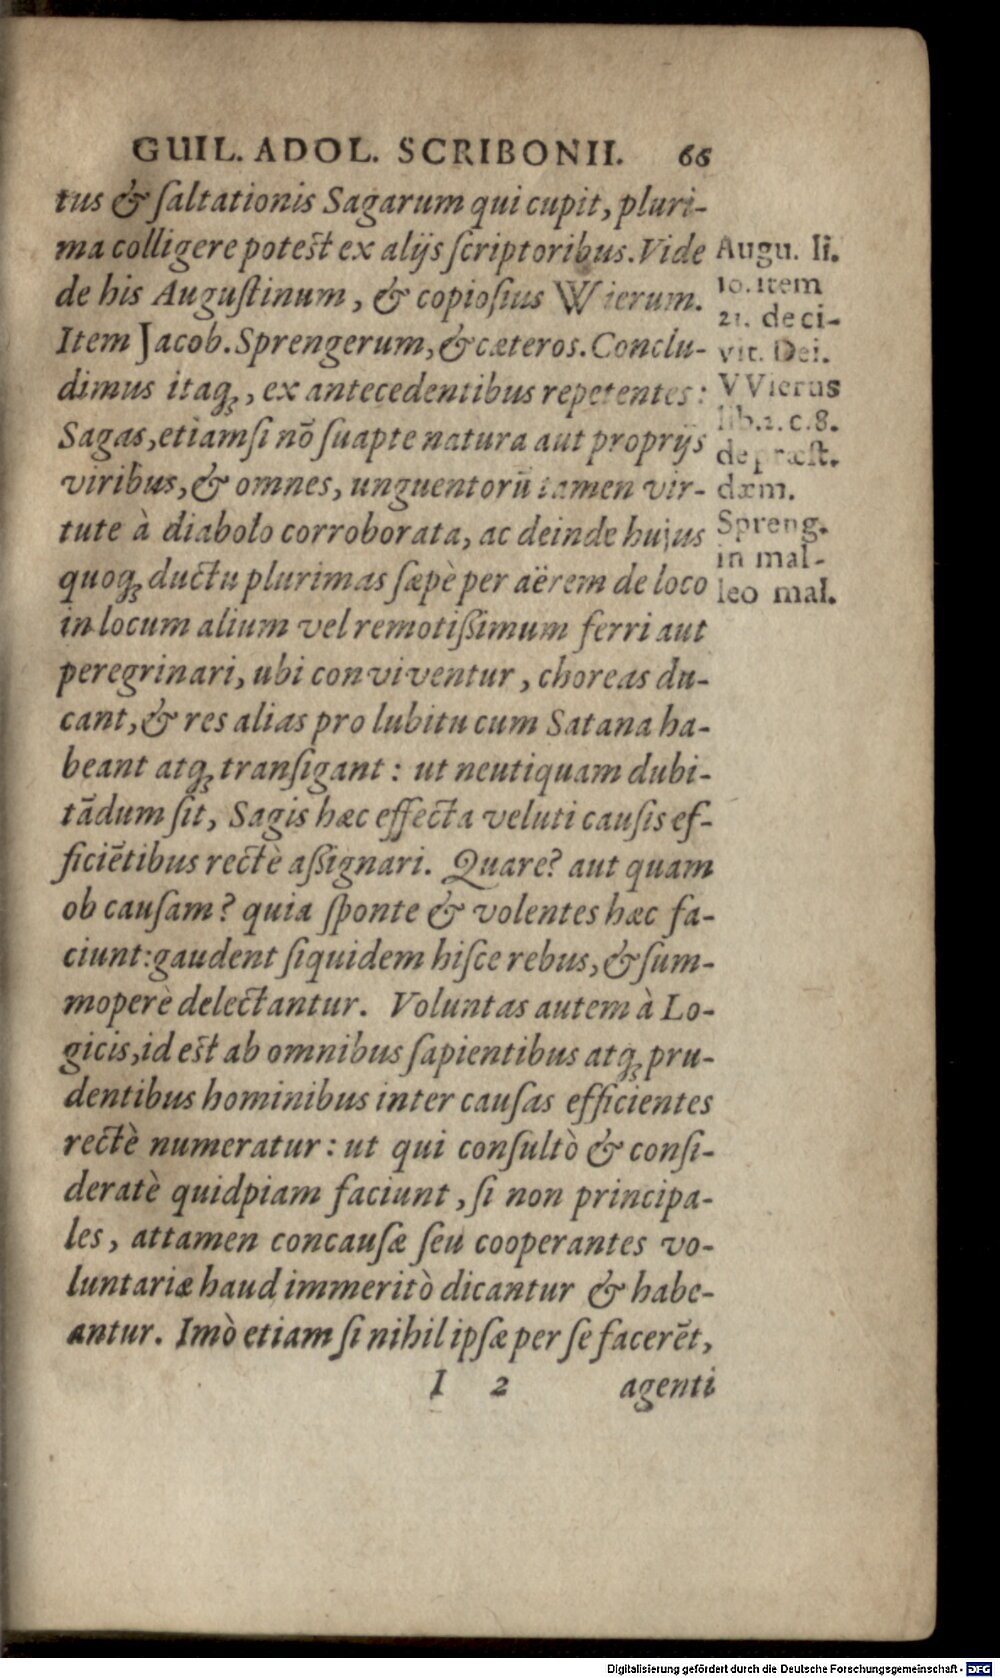 GUIL. ADOL. SCRIBONII. 66
tus & ſaltationis Sagarum qui cupit, pluri-
ma colligere poteſt ex alijs ſcriptoribus. Vide
de his Auguſtinum, & copioſius Wierum.
Item Jacob. Sprengerum, & cæteros. Conclu-
dimus itaq́ꝫ, ex antecedentibus repetentes:
Sagas, etiamſi nõ ſuapte natura aut proprijs
viribus, & omnes, unguentorũ tamen vir-
tute à diabolo corroborata, ac deinde hujus
quoqꝫ ductu plurimas ſæpè per aërem de loco
in locum alium vel remotiſſimum ferri aut
peregrinari, ubi conviventur, choreas du-
cant, & res alias pro lubitu cum Satana ha-
beant atqꝫ tranſigant: ut neutiquam dubi-
tādum ſit, Sagis hæc effecta veluti cauſis ef-
ficiētibus rectè aſſignari. Quare? aut quam
ob cauſam? quia ſponte & volentes hæc fa-
ciunt: gaudent ſiquidem hiſce rebus, & ſum-
moperè delectantur. Voluntas autem à Lo-
gicis, id eſt ab omnibus ſapientibus atqꝫ pru-
dentibus hominibus inter cauſas efficientes
rectè numeratur: ut qui conſultò & conſi-
deratè quidpiam faciunt, ſi non principa-
les, attamen concauſæ ſeu cooperantes vo-
luntariæ haud immeritò dicantur & habe-
antur. Imò etiam ſi nihil ipſæ per ſe facerēt,
I 2 agenti
Augu. li.
10. item
21. de ci-
vit. Dei.
VVierus
lib. 2. c. 8.
de præſt.
dæm.
Spreng.
in mal-
leo mal.
Digitalisierung gefördert durch die Deutsche Forschungsgemeinschaft - DFG